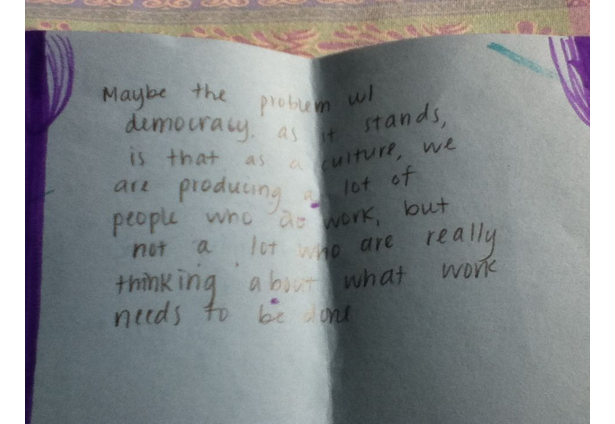 Maybe the problem w/
democracy. as it stands,
is that as a culture, we
are producing a lot of
people who do work, but
not a lot who are really
thinking about what work
needs to be done